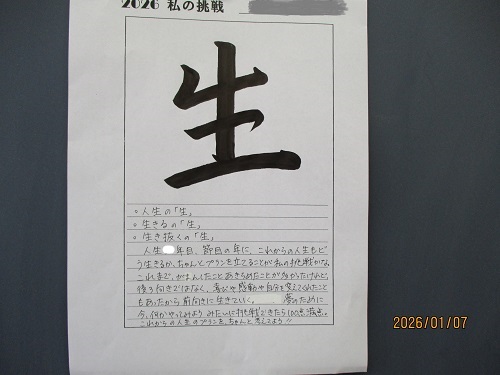 2026 私の挑戦
生
。人生の「生」
。生きるの「生」
。生き抜くの「生」
人生 年目、節目の年に、これからの人生もど
う生きるか、ちゃんとプランを立てることが私の挑戦かな。
これまで、がまんしたことあきらめたことが多かったけれど、
後ろ向きではなく、喜びや感動や自分を支えてくれたこと
もあったから前向きに生きていく。 夢のために
今、何かやってみよう みたいに挑戦できたら100点満点。
これからの人生のプランを、ちゃんと考えてみよう!!
2026/01/07